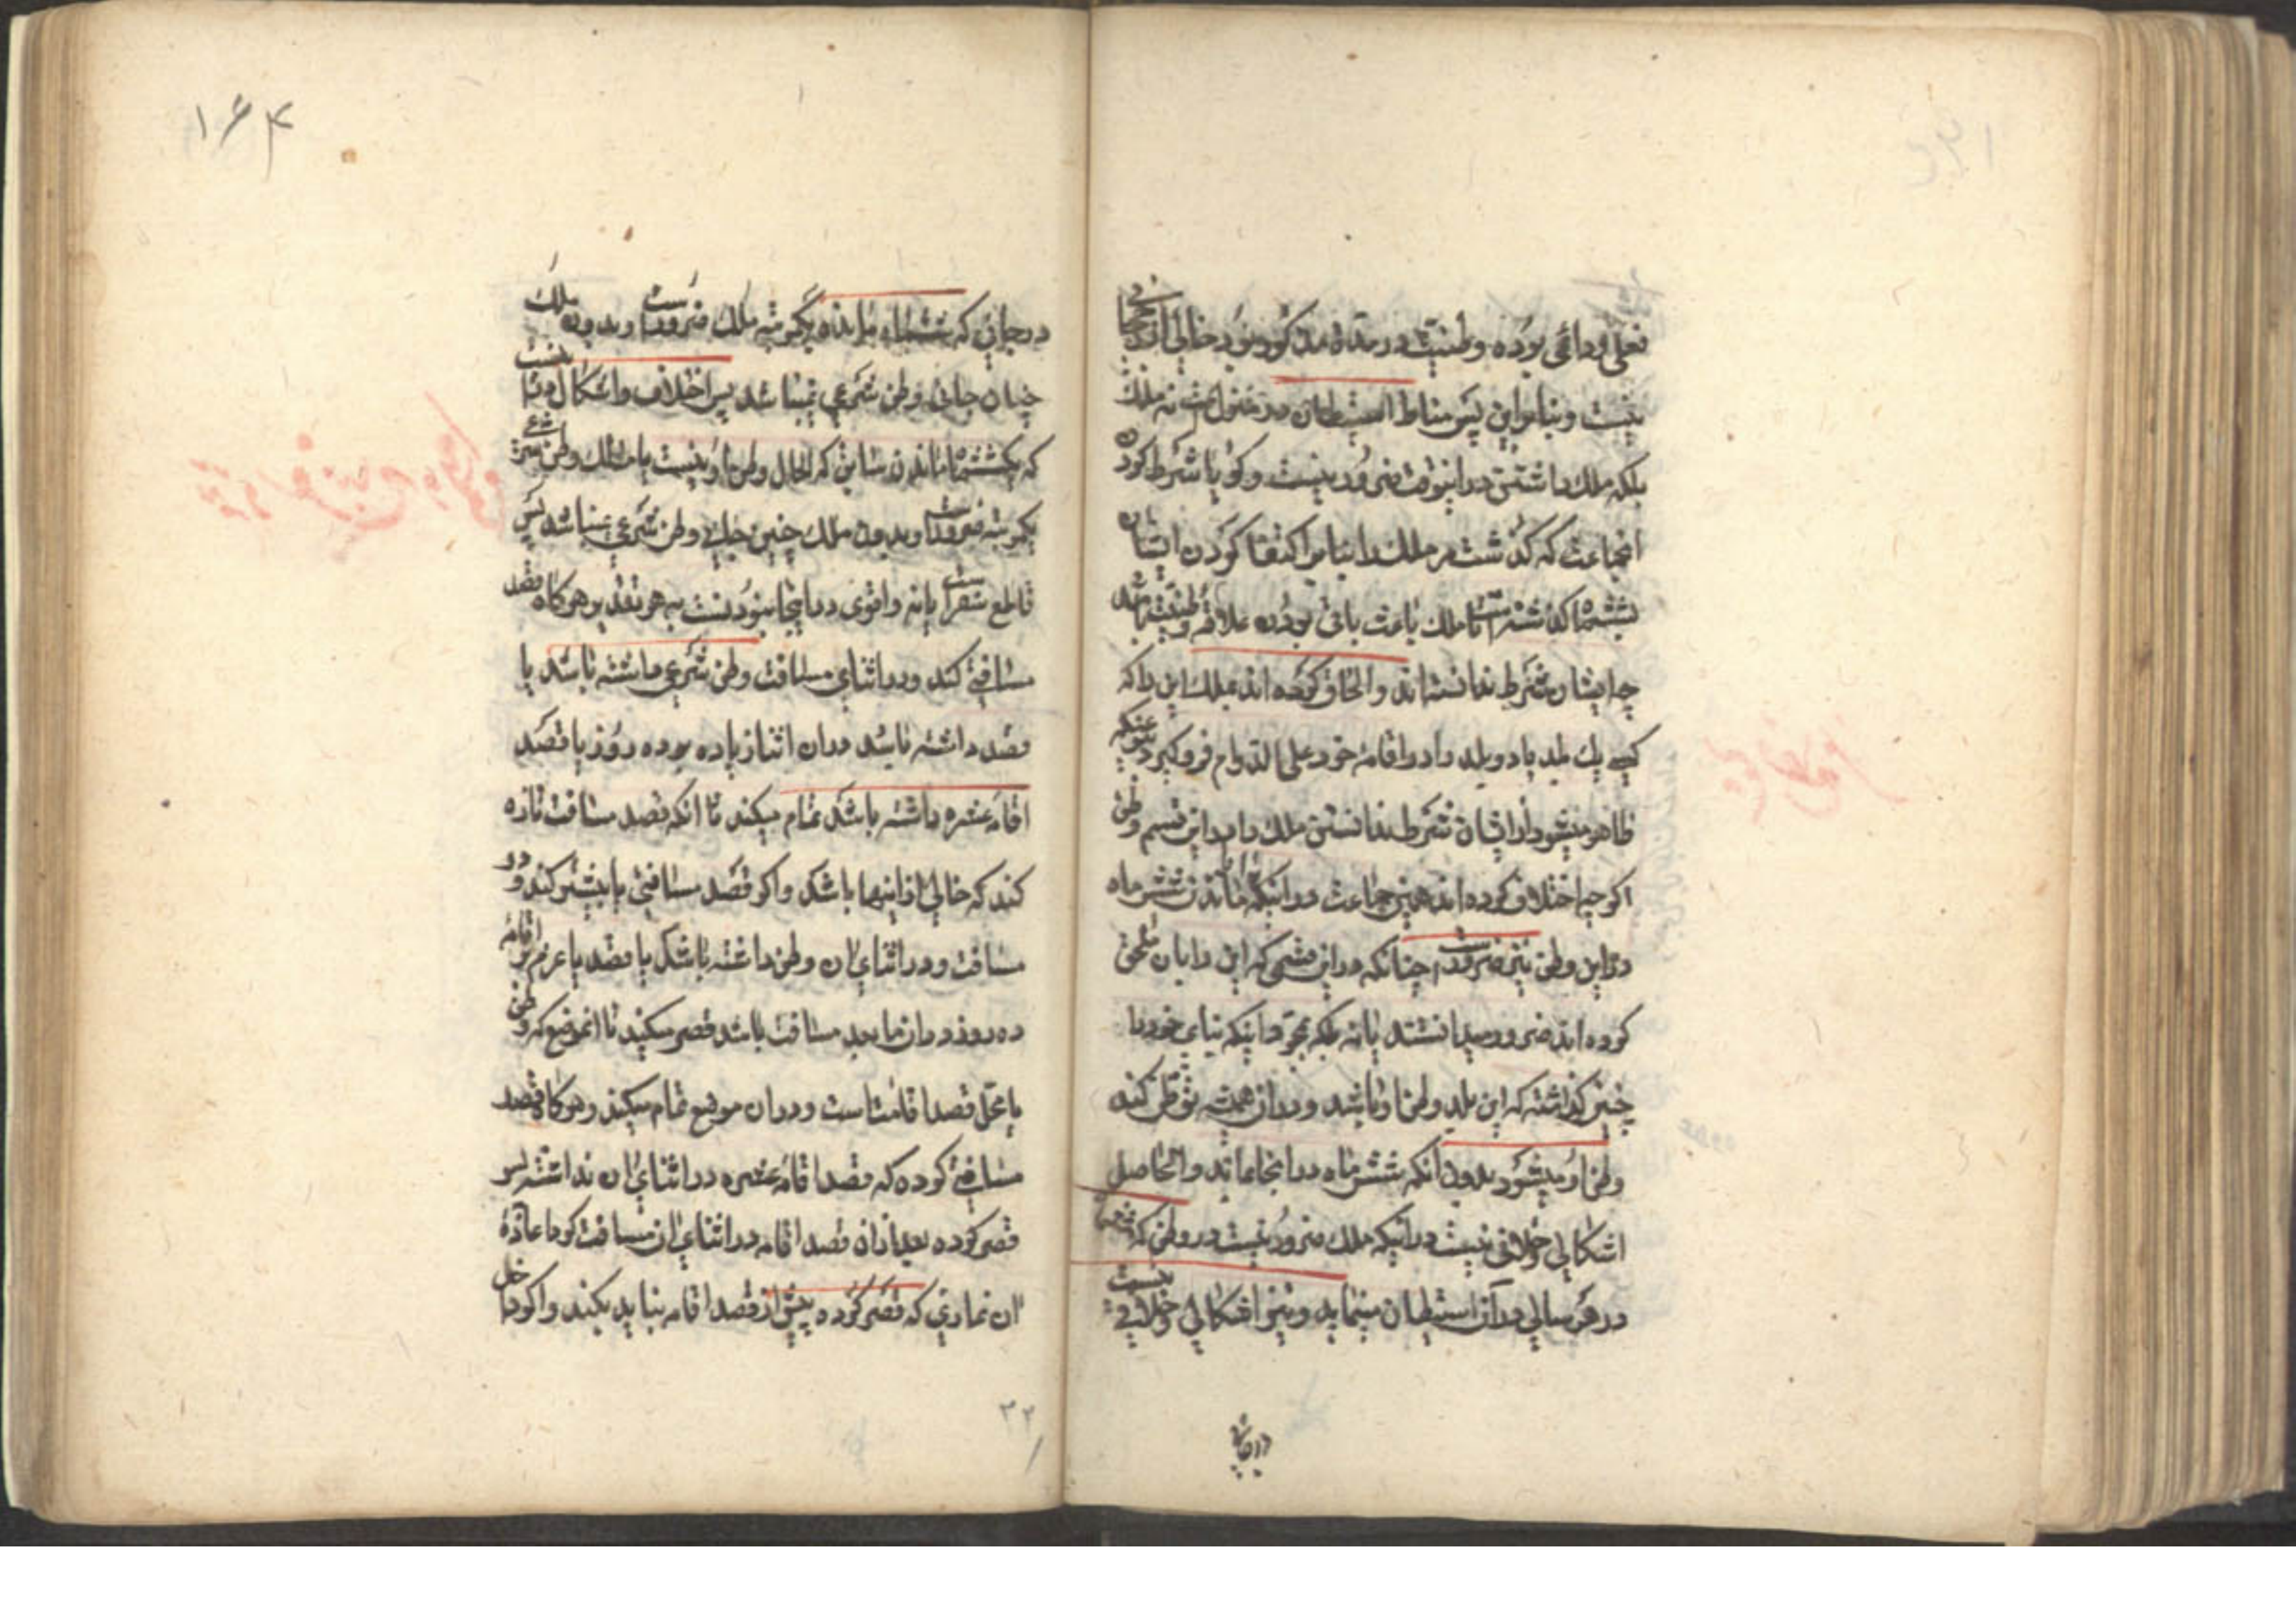 فعلی و دائمی بوده وطنیت در مدة مذکور نبود خالی از
نیست و بنابراین پس مناط استیطان در منزل است نه ملک
بلکه ملک داشتن در اینوقت ضرور نیست و گویا شرط کردن
انجماعت که گذشت مر ملک را بنابر اکتفا کردن ایشان
بششماه گذشته است تا ملک باعث باقی بودن علاقه وطنیت باشد
چه ایشان شرط ندانسته اند و الحاق کرده اند بملک این را که
کسی یک بلد یا دو بلد را دار اقامه خود علی الدوام فرو گیرد
ظاهر میشود از ایشان شرط ندانستن ملک را در این قسم وطن
اگر چه اختلاف کرده اند همین جماعت در اینکه ماندن شش ماه
در این وطن نیز ضرور است چنانکه در این قسمی که این را بان ملحق
کرده اند ضرور میدانستند یا نه بلکه بمجرد اینکه بنای خود را
چنین گذاشته که این بلد وطن او باشد و در ان همیشه توطن کند
وطن او میشود بدون انکه شش ماه در انجا بماند و الحاصل
اشکالی و خلافی نیست در اینکه ملک ضرور نیست در وطنی که
در هر سالی در آن استیطان مینماید و نیز اشکالی و خلافی نیست
در جائی
۱۶۴
در جائی که ششماه مانده یکمرتبه ملک ضرور است و بدون ملک
چنان جائی وطن شرعی نمیباشد پس اختلاف و اشکال
که بششماه ماندن که الحال وطن او نیست با ملک وطن شرعی
یکمرتبه ضرور است و بدون ملک چنین جائی وطن شرعی نمیباشد پس
قاطع سفر است یا نه و اقوی در اینجا نبودنست به هر تقدیر هر گاه قصد
مسافتی کند و در اثنای مسافت وطن شرعی داشته باشد یا
قصد داشته باشد در ان اثنا زیاده بر ده روز یا قصد
اقامه عشره داشته باشد تمام میکند تا انکه قصد مسافت تازه
کند که خالی از اینها باشد و اگر قصد مسافتی یا بیشتر کند و در
مسافت و در اثنای ان وطن داشته باشد یا قصد یا عزم بر اقامه
ده روز در ان ما بعد مسافت باشد قصر میکند تا انموضع که وطن
یا محل قصد اقامت است و در ان موضع تمام میکند و هر گاه قصد
مسافتی کرده که قصد اقامه عشره در اثنای ان نداشته پس
قصر کرده بعد از ان قصد اقامه در اثنای ان مسافت کرد اعادهٔ
ان نمازی که قصر کرده پیش از قصد اقامه نباید بکند و اگر داخل
۳۲